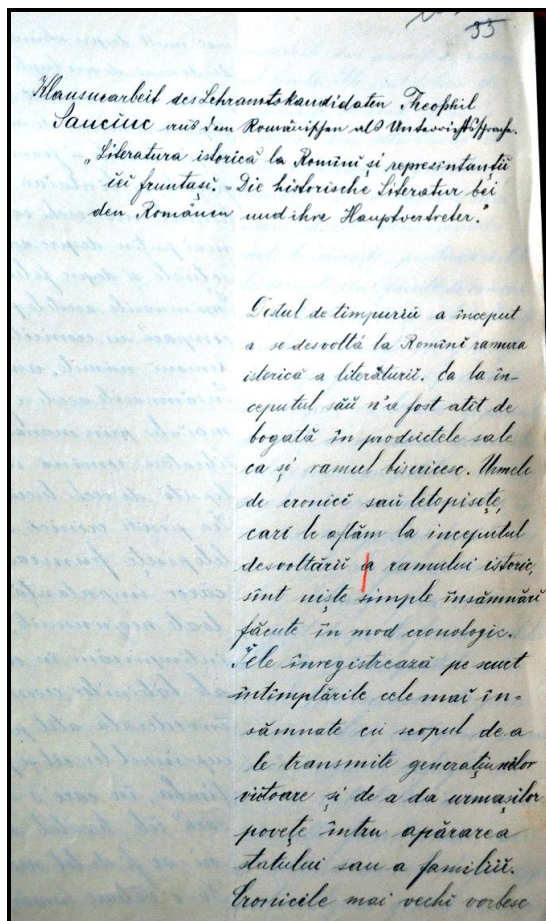 35
Klausurarbeit des Lehramtskandidaten Theophil
Sauciuc aus dem Romänischen als Unterrichtssprache.
„Literatura istorică la Romîni și represintanții
ei fruntași. – Die historische Literatur bei
den Romänen und ihre Hauptvertreter."
Destul de timpuriu a început
a se desvoltà la Romîni ramura
istorică a literăturii. Ea la în-
ceputul său n'a fost atît de
bogată în productele sale
ca și ramul bisericesc. Urmele
de cronici sau letopisețe,
cari le aflăm la inceputul
desvoltării a ramului istoric,
sînt niște simple însămnări
făcute în mod cronologic.
Iele înregistrează pe scurt
întîmplările cele mai în-
sămnate cu scopul de a
le transmite generațiunilor
viitoare și de a da urmașilor
povețe întru apărarea
statului sau a familiii.
Cronicile mai vechi vorbesc